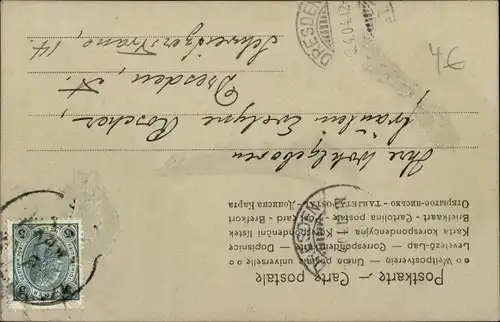 Postkarte — Carte postale
o o Weltpostverein — Union postale universelle o o
Levelező-Lap — Correspondenzkarte — Dopisnice
Karta korespondencyjna — Korespondenční lístek
Briefkaart — Cartolina postale — Post card — Brefkort
Открытое письмо — ТАРЈЕТА POSTAL — Дописна Карта
Ihre Wohlgeboren
Fräulein Evelyne Roscher,
Dresden, A.
Schweidzerstrasse, 14.
DRESDEN
4.04.12
DRESDEN
46
5
5